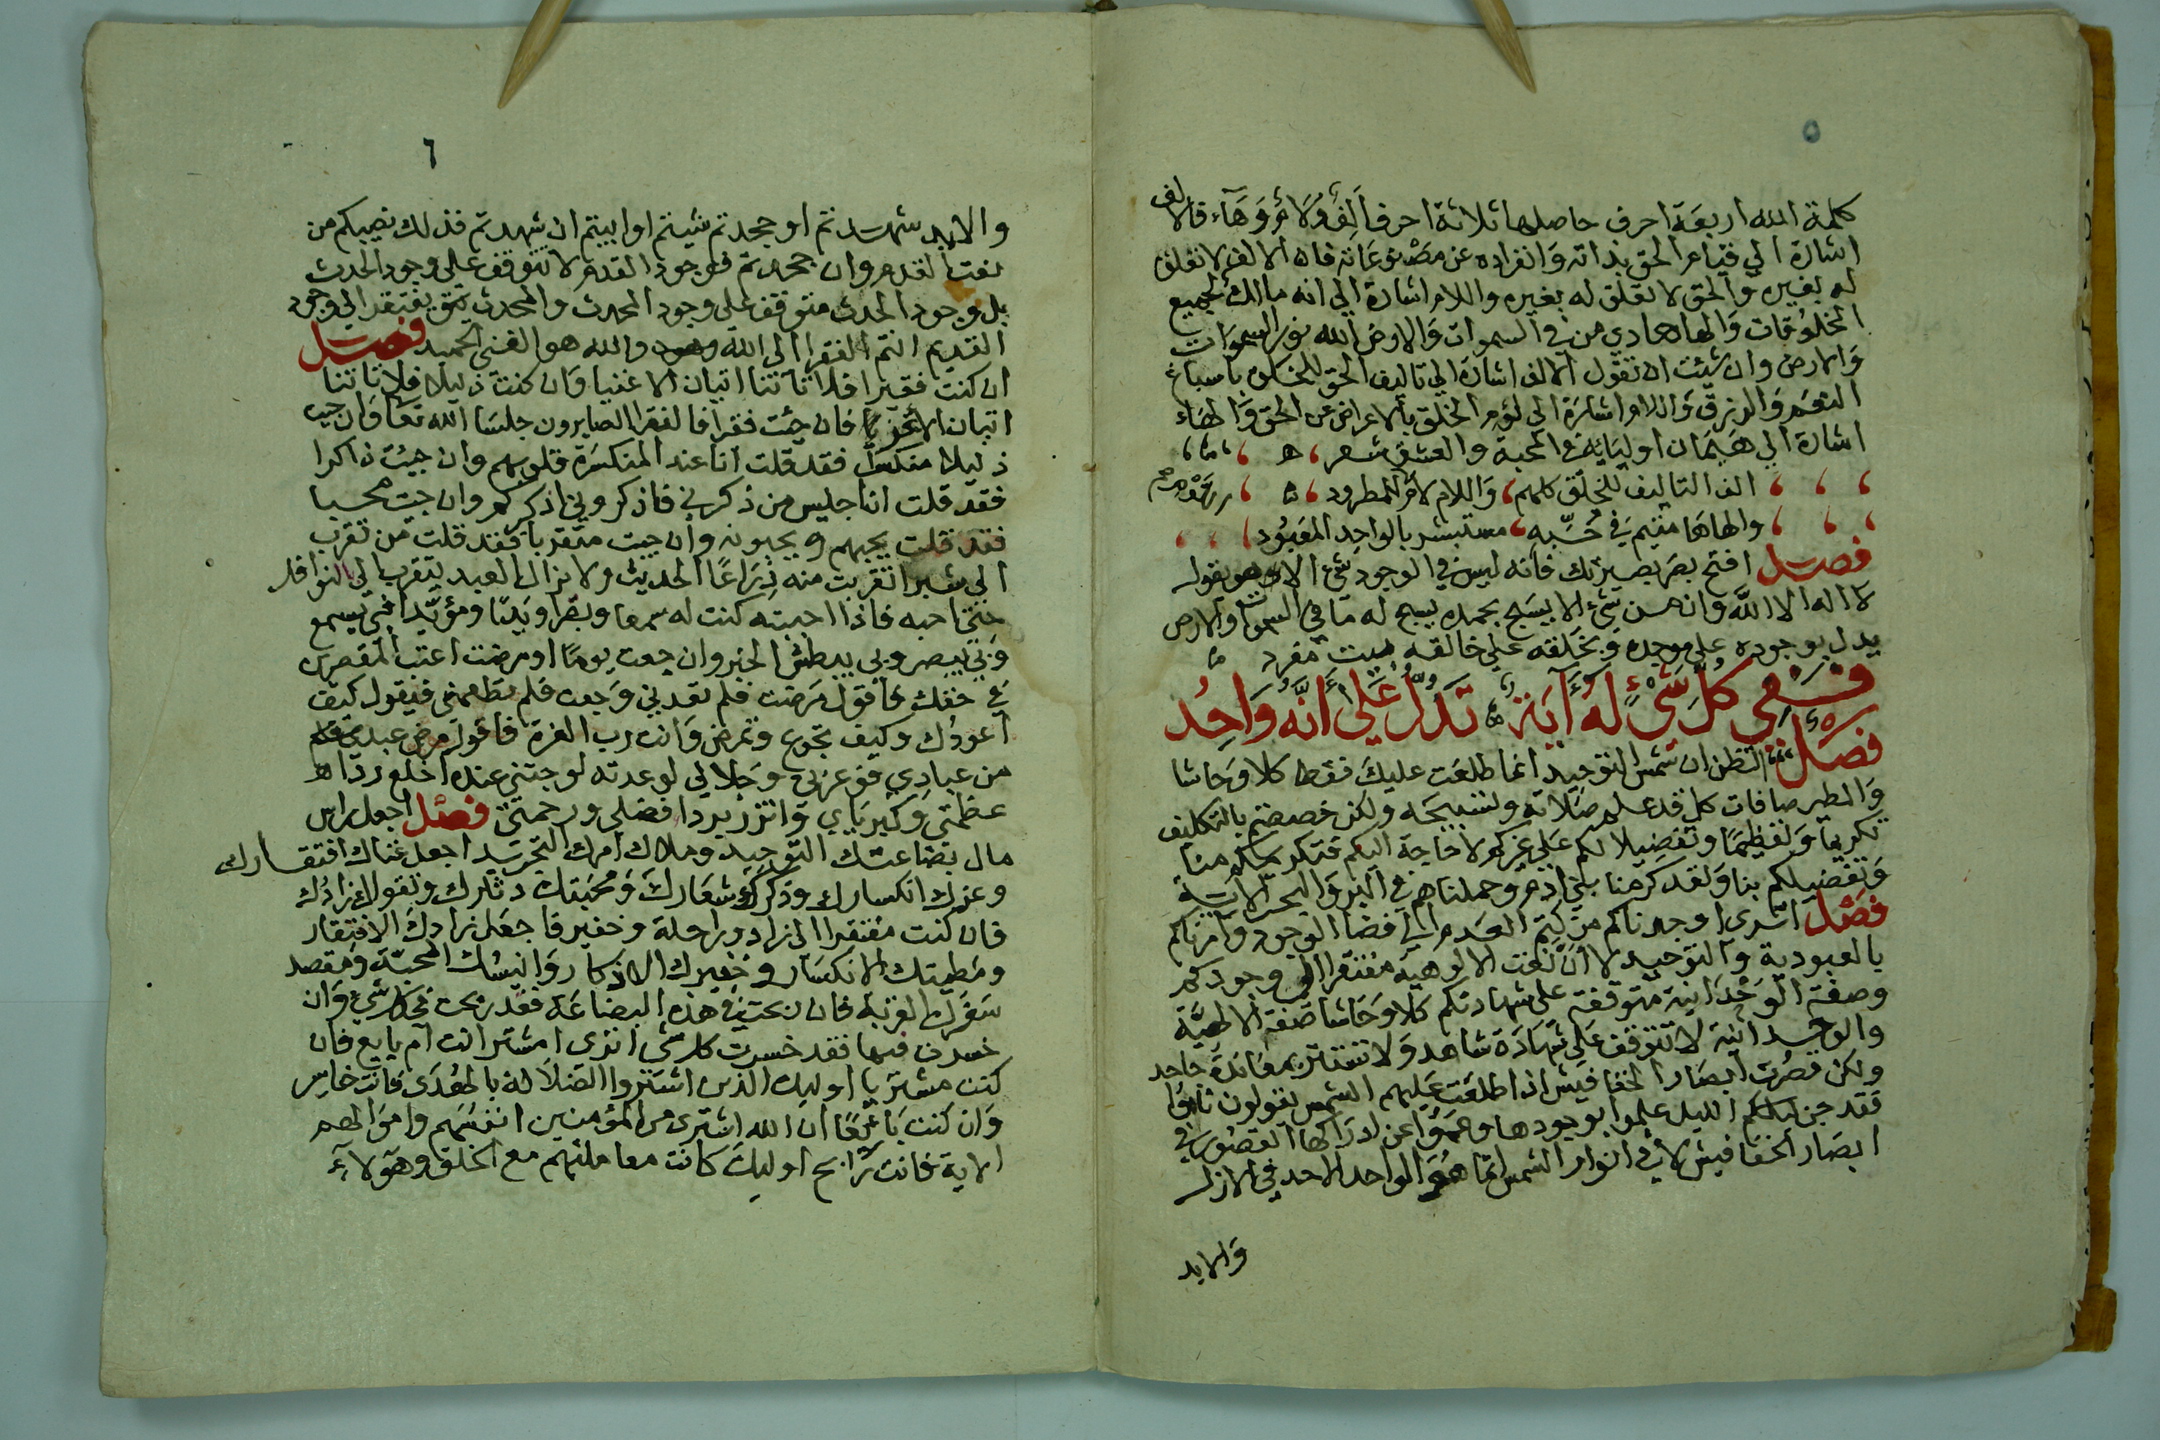 ٥
كلمة الله اربعة احرف حاصلها ثلاثة احرف اَلِفٌ وَلَامٌ وَهَآء فالالف
اشارة الي قيام الحق بذاته وَانفراده عن مصْنوعَاته فان الالف لا تعلق
له بغيره وَالحق لا تعلق له بغيره واللام اشارة الي انه مالك لجميع
المخلوُقات وَالهاء هادي من في السموات وَالارض الله نور السموات
وَالارض وان شئت ان تقول الالف اشارة الي تاليف الحق للخلق باسباغ
النعَم وَالرزق وَاللام اشارَة الي لؤم الخلق بالاعراض عن الحق وَالهَاء
اشارة الي هَيَمَان اوليَايه في المحبة والعشق شعر
الف التاليف للخلق كلهم وَاللام لام اللوم للمطرود
والهاء هَا متيم في حُبِّه مستبشر بالواحِد المعبُود
فصل افتح بصَر بصيرتك فانه ليس في الوجود شيْ الا وهو يقول
لا اله الا اللّه وان من شيْ الا يسَبح بحمده يسبح له ما في السموات والارض
يدل بوجوده علي موجده وَبخلقه علي خالقه بيت مفرد
فَفِي كُلِّ شَيْءٍ لَهُ آيَة تَدُلُّ عَلَى أَنَّهُ وَاحِدُ
فصل لا تظن ان شمس التوحيد انما طلعَت عليكَ فقط كلا وَحَاشا
وَالطير صافات كل قد علم صَلَاته وتسبيحَه ولكن خصصتم بالتكليف
تكريمًا وَتعظيمًا وتفضِيلا لكم عَلي غيركم لا حَاجة اليكم فتكريمكم منا
وَتفضيلكم بنا وَلقد كرمنا بني ادم وحملناهم في البر وَالبحر الاية
فصْل اتَرى اوجدناكم من كتم العَدم الي فضا الوجود وَامرناكم
بالعبودية وَالتوحيد لانَّ نعت الالوهيَة مفتقرا الي وجودكم
وصفة الوَحْدَانية متوقفة على شهادتكم كلا وَحَاشا صفة الالهيَّة
والوحدانية لا تتوقف عَلى شهَادَة شاهد وَلا تستتر بمعَاندة جاحد
ولكن قصُرت ابصَار الخفافيش اذا طلعَت عَليهم الشمس يقولون
فقد جن الليل علموا بوجودها وعموُا عن ادرَاكها القصُور في
ابصَار الخفافيش لا في انوار الشمس انما هُوَ الواحد الاحد في الازل
وَالابد
٦
والابد شهدتم او جحدتم شيتم او ابيتم ان شهدتم فذلك نصيبكم من
نعت القدم وان جحدتم فوجود القدم لا تتوقف علي وجود الحدث
بل وجود الحدث متوقف علي وجود المحدث والمحدث يفتقر الي وجود
القديم انتم الفقرا الى الله والله هو الغني الحميد فصل
ان كنت فقيرا فلا تاتنا اتيان الاغنيا وَان كنت ذليلا فلا تاتنا
اتيان الاعزا فان جئت فقرا فالفقرا الصابرون جلسَا الله تعَا وَان جيت
ذليلا منكسرا فقد قلت انا عند المنكسَرة قلوبهم وان جيت ذاكرا
فقد قلت انا جليس من ذكرني فاذكروني اذكركم وان جيت محبا
فقد قلت يحبهم ويحبونه وان جيت متقربا فقد قلت من تقرب
الي شبرا تقربت منه ذِرَاعًا الحديث ولا يزال العبد يتقرب الي بالنوافل
حتى احبه فاذا احببته كنت له سمعا وبصرا ويَدًا ومؤيّدا فبي يسمع
وَبي يبصر وبي يبطش الخبر وان جعت يومًا او مرضت اعتب المقصرين
في حقك فاقول مَرضت فلم تعدني وَجعت فلم تطعمني فيقول كيف
اعودُك وكيف تجوع وتمرض وَانت رب العزة فاقول مرض عبدي فلم
من عبادي فوعزتي وَجلالي لو عدته لوجدتني عنده اخلع ردا
عظمتي وَكبريَاي وَاتزر بردا فضلي ورحمتي فصْل اجعل راس
مال بضاعتك التوحيد وملاك امرك التجريد اجعل غناك افتقارك
وعزك انكسارك وذكرك شعَارك وَمحبتك دثارك وتقواك زادُك
فان كنت مفتقرا الى زاد وراحلة وخفير فاجعَل زادك الافتقار
ومَطيتك الانكسَار وخفيرك الاذكار وَانيسُك المحبّة ومقصد
سَفرك القربة فان ربحت في هذه البضاعَة فقد ربحت كل شيْ وَان
خسرت فيها فقد خسرت كل شي اترى ا مشتر انت ام بايع فان
كنت مشتريا اوليك الذين اشتَروا الضلالة بالهُدَى فانت خاسِر
وَان كنت بَائِعًا ان الله اشترى من المؤمنين انفسَهم وامَوالهم
الاية فانت رَّابح اوليك كانت معاملتهم مع الخلق وهَولآء